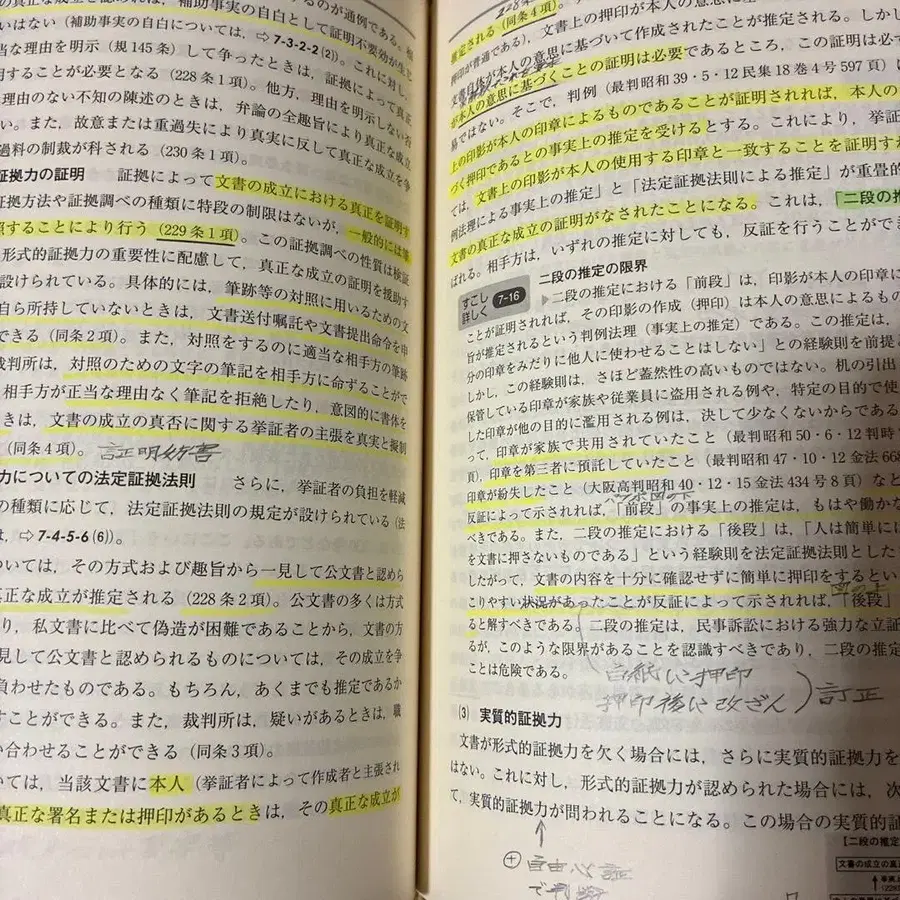 の真正な成立と認めれば，補助事実の自白として証明不要効が生じ
いはない（補助事実の自白については，⇨7-3-2-2 (2)）。これに対し，
当な理由を明示（規145条）して争ったときは，証拠によって真正
明することが必要となる（228条1項）。他方，理由を明示しない否
理由のない不知の陳述のときは，弁論の全趣旨により真正な成立
い。また，故意または重過失により真実に反して真正な成立を争
過料の制裁が科される（230条1項）。
証拠力の証明　証拠によって文書の成立における真正を証明す
証拠方法や証拠調べの種類に特段の制限はないが，一般的には筆
照することにより行う（229条1項）。この証拠調べの性質は検証
形式的証拠力の重要性に配慮して，真正な成立の証明を援助す
設けられている。具体的には，筆跡等の対照に用いるための文
自ら所持していないときは，文書送付嘱託や文書提出命令を申
できる（同条2項）。また，対照をするのに適当な相手方の筆跡
裁判所は，対照のための文字の筆記を相手方に命ずることがで
相手方が正当な理由なく筆記を拒絶したり，意図的に書体を
きは，文書の成立の真否に関する挙証者の主張を真実と擬制
（同条4項）。証明妨害
力についての法定証拠法則　さらに，挙証者の負担を軽減
の種類に応じて，法定証拠法則の規定が設けられている（法
は，⇨7-4-5-6 (6)）。
ついては，その方式および趣旨から一見して公文書と認めら
真正な成立が推定される（228条2項）。公文書の多くは方式
り，私文書に比べて偽造が困難であることから，文書の方
見して公文書と認められるものについては，その成立を争
負わせたものである。もちろん，あくまでも推定であるか
すことができる。また，裁判所は，疑いがあるときは，職
い合わせることができる（同条3項）。
いては，当該文書に本人（挙証者によって作成者と主張され
真正な署名または押印があるときは，その真正な成立が
推定される（同条4項）。文書上の押印が本人の意思に
押印が普通である），文書上の押印が本人の意思に基づ
文書自体が本人の意思に基づいて作成されたことが推定される。しかし
が本人の意思に基づくことの証明は必要であるところ，この証明は必ず
易ではない。そこで，判例（最判昭和39・5・12民集18巻4号597頁）は
上の印影が本人の印章によるものであることが証明されれば，本人の
づく押印であるとの事実上の推定を受けるとする。これにより，挙証
ては，文書上の印影が本人の使用する印章と一致することを証明すれ
例法理による事実上の推定」と「法定証拠法則による推定」が重畳的
文書の真正な成立の証明がなされたことになる。これは，「二段の推
ばれる。相手方は，いずれの推定に対しても，反証を行うことができ
すこし詳しく 7-16　二段の推定の限界
▶二段の推定における「前段」は，印影が本人の印章に
ことが証明されれば，その印影の作成（押印）は本人の意思によるもの
旨が推定されるという判例法理（事実上の推定）である。この推定は，
分の印章をみだりに他人に使わせることはしない」との経験則を前提と
しかし，この経験則は，さほど蓋然性の高いものではない。机の引出
保管している印章が家族や従業員に盗用される例や，特定の目的で使
した印章が他の目的に濫用される例は，決して少なくないからである
って，印章が家族で共用されていたこと（最判昭和50・6・12判時
頁），印章を第三者に預託していたこと（最判昭和47・10・12金法668
印章が紛失したこと（大阪高判昭和40・12・15金法434号8頁）など
反証によって示されれば，「前段」の事実上の推定は，もはや働かな
べきである。また，二段の推定における「後段」は，「人は簡単には
を文書に押さないものである」という経験則を法定証拠法則とした
したがって，文書の内容を十分に確認せずに簡単に押印をするとい
こりやすい状況があったことが反証によって示されれば，「後段」
ると解すべきである。二段の推定は，民事訴訟における強力な立証
るが，このような限界があることを認識すべきであり，二段の推定
ことは危険である。
白紙に押印
押印後に改ざん）訂正
(3) 実質的証拠力
文書が形式的証拠力を欠く場合には，さらに実質的証拠力を
はない。これに対し，形式的証拠力が認められた場合には，次
て，実質的証拠力が問われることになる。この場合の実質的証
↑
⊕自由心証
で判断
【二段の推定
文書の成立の真